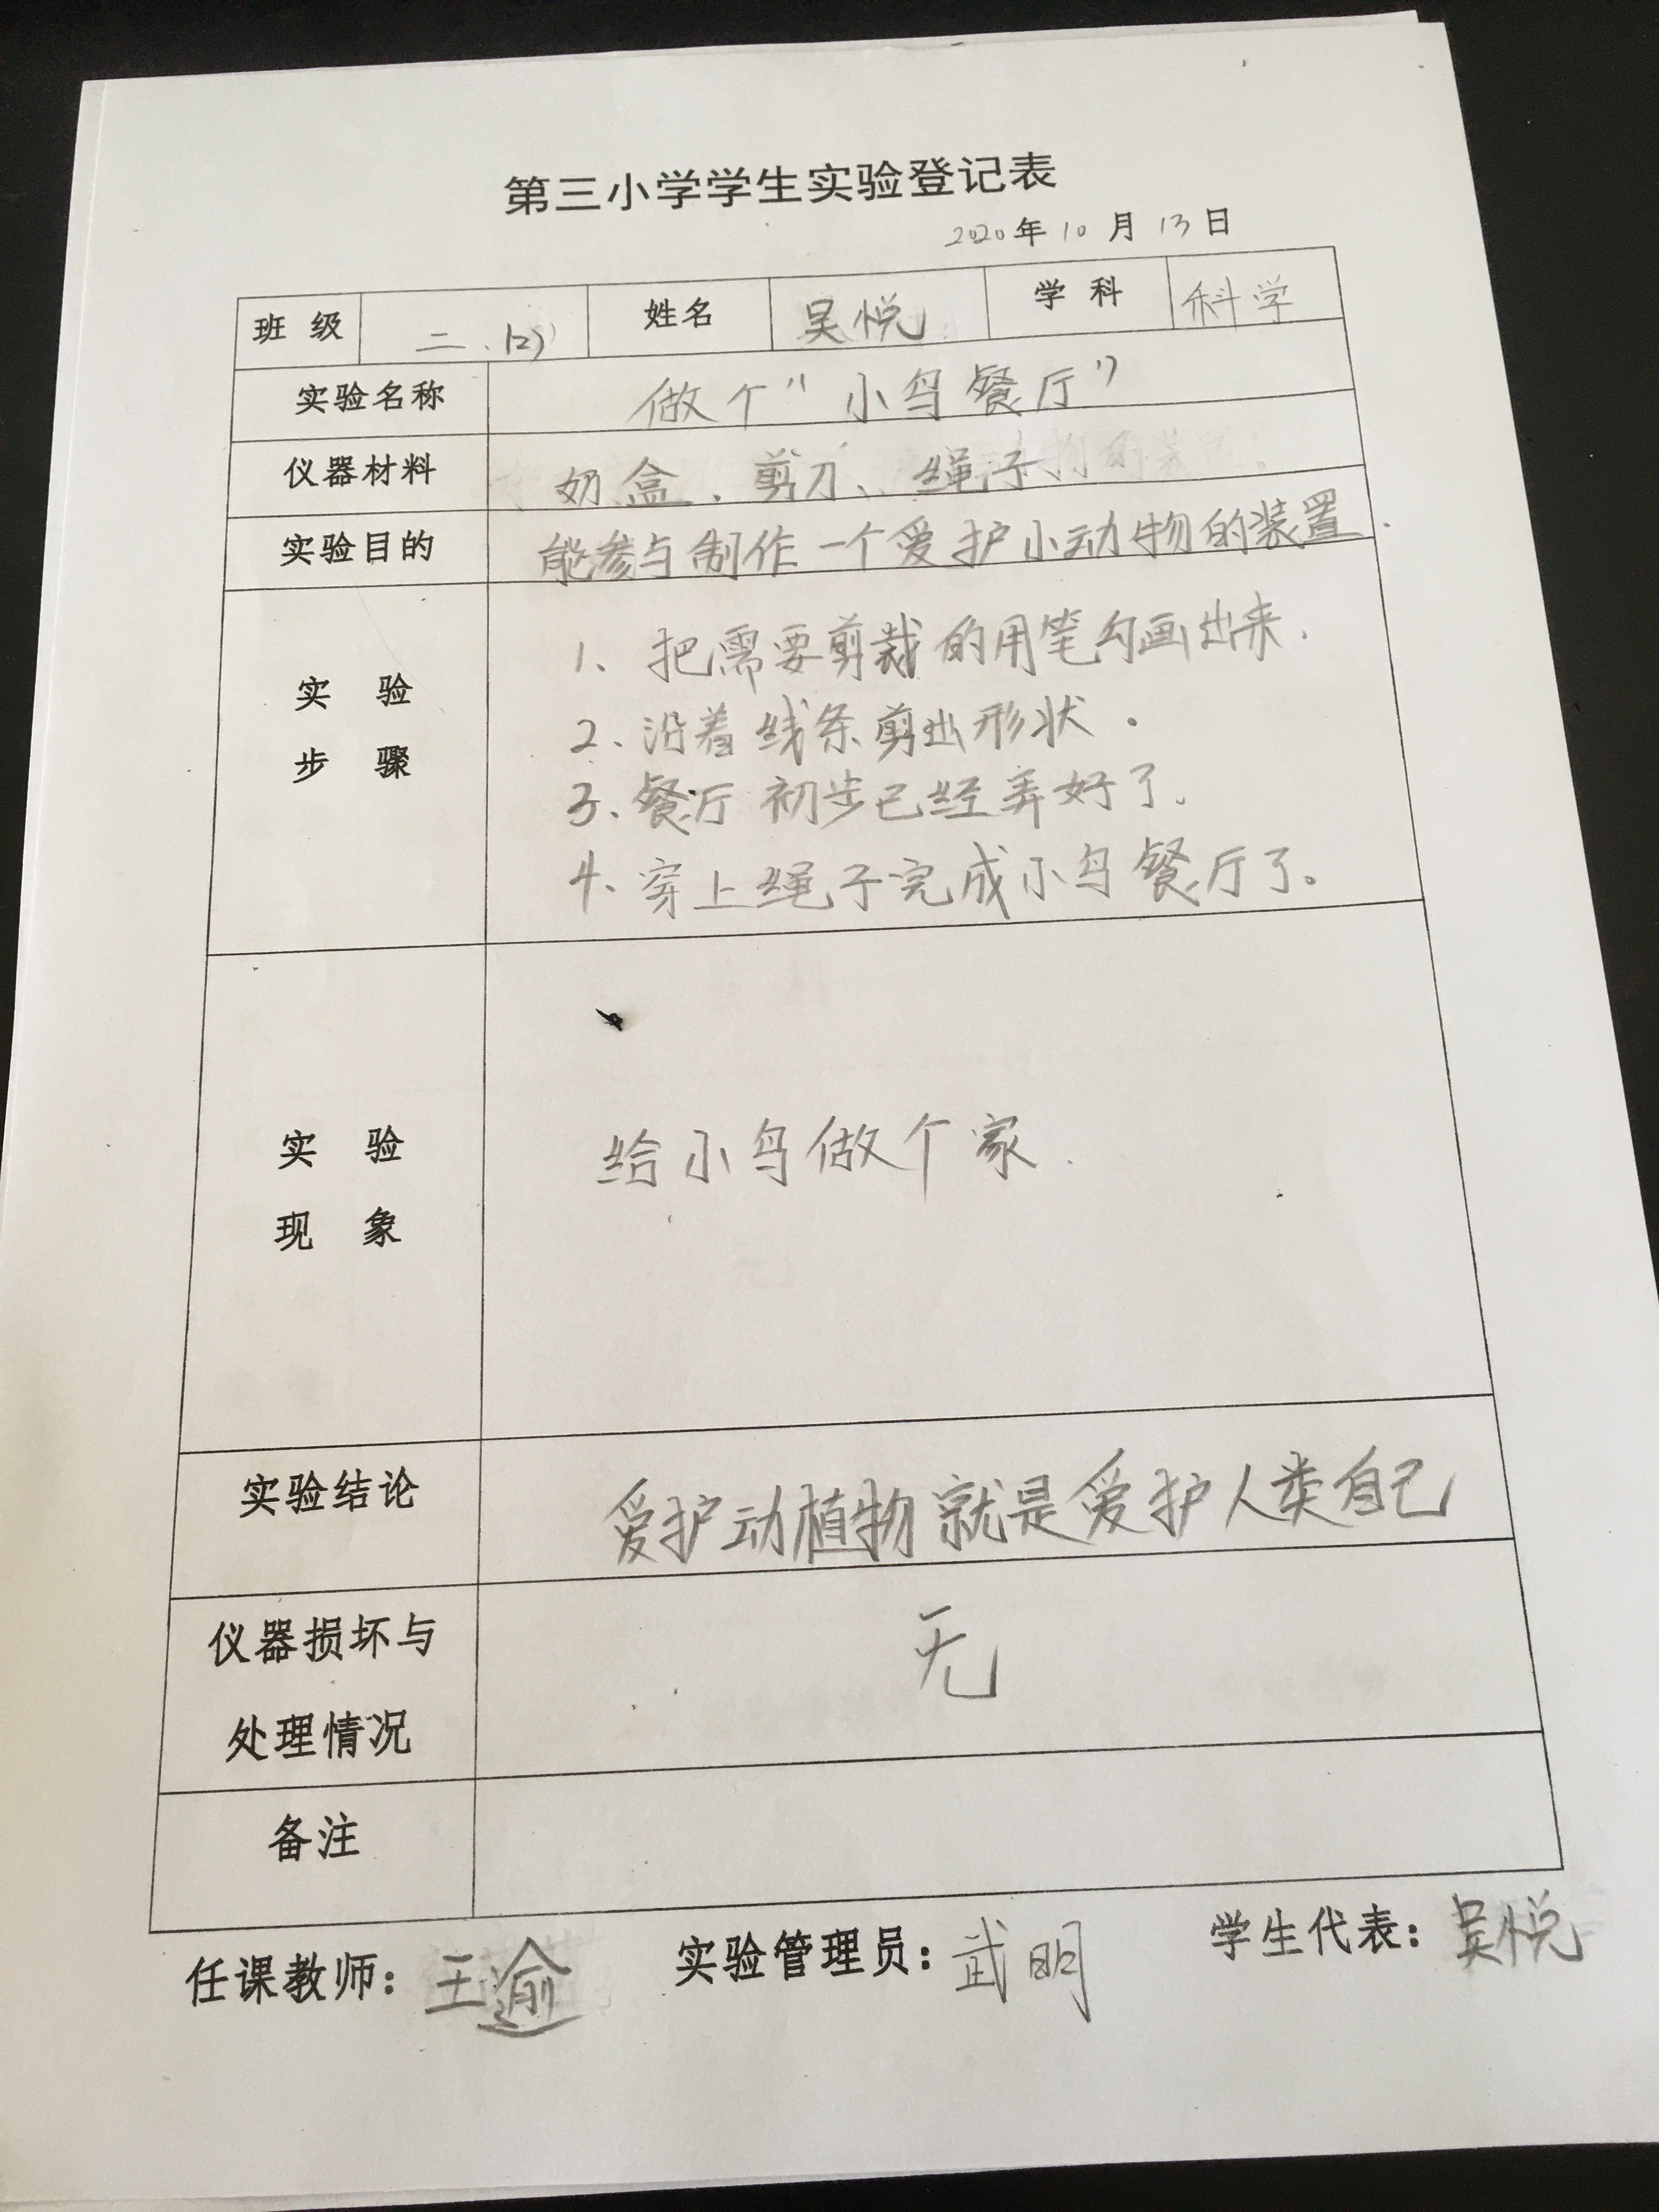 第三小学学生实验登记表
2020年10月13日
班级 二.(2) 姓名 吴悦 学科 科学
实验名称 做个“小鸟餐厅”
仪器材料 奶盒、剪刀、绳子
实验目的 能参与制作一个爱护小动物的装置.
实验
步骤
1、把需要剪裁的用笔勾画出来.
2、沿着线条剪出形状.
3、餐厅初步已经弄好了.
4、穿上绳子完成小鸟餐厅了。
实验
现象
给小鸟做个家.
实验结论 爱护动植物就是爱护人类自己
仪器损坏与
处理情况
无
备注
任课教师：王逾 实验管理员：武明 学生代表：吴悦